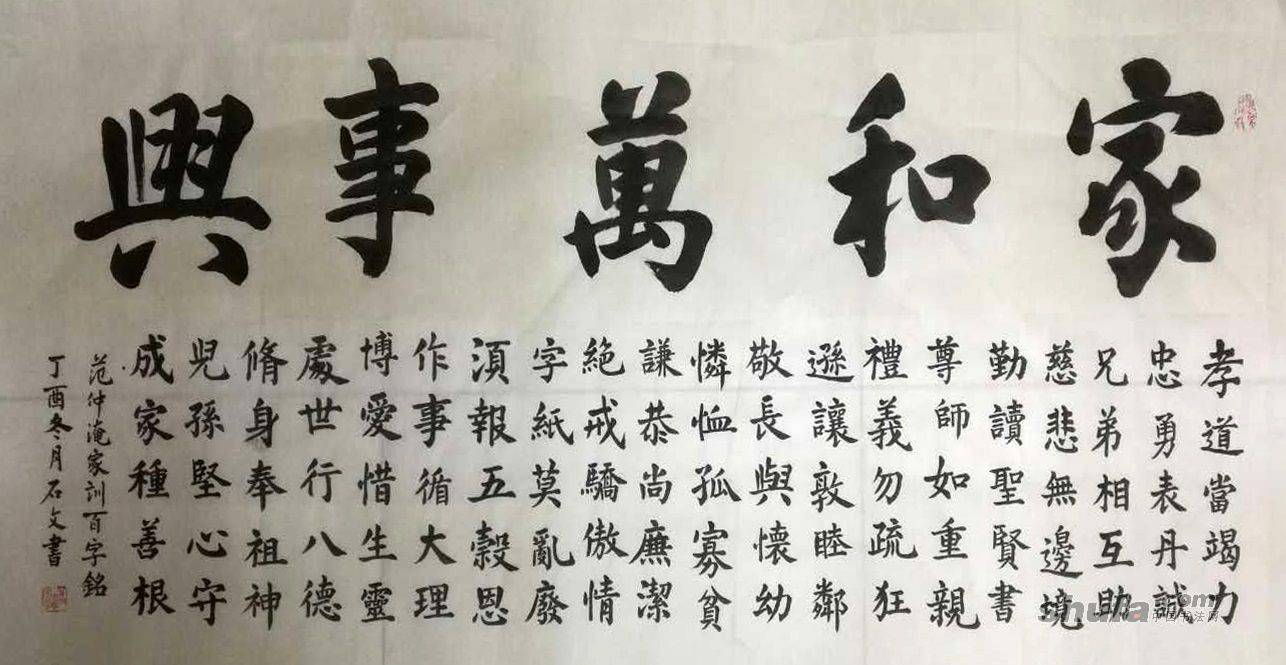 家和萬事興
孝道當竭力
忠勇表丹誠
兄弟相互助
慈悲無邊境
勤讀聖賢書
尊師如重親
禮義勿疏狂
遜讓敦睦鄰
敬長與懷幼
憐恤孤寡貧
謙恭尚廉潔
絕戒驕傲情
字紙莫亂廢
須報五穀恩
作事循大理
博愛惜生靈
處世行八德
脩身奉祖神
兒孫堅心守
成家種善根
范仲淹家訓百字銘
丁酉冬月石文書
shufa.com
中国书法网